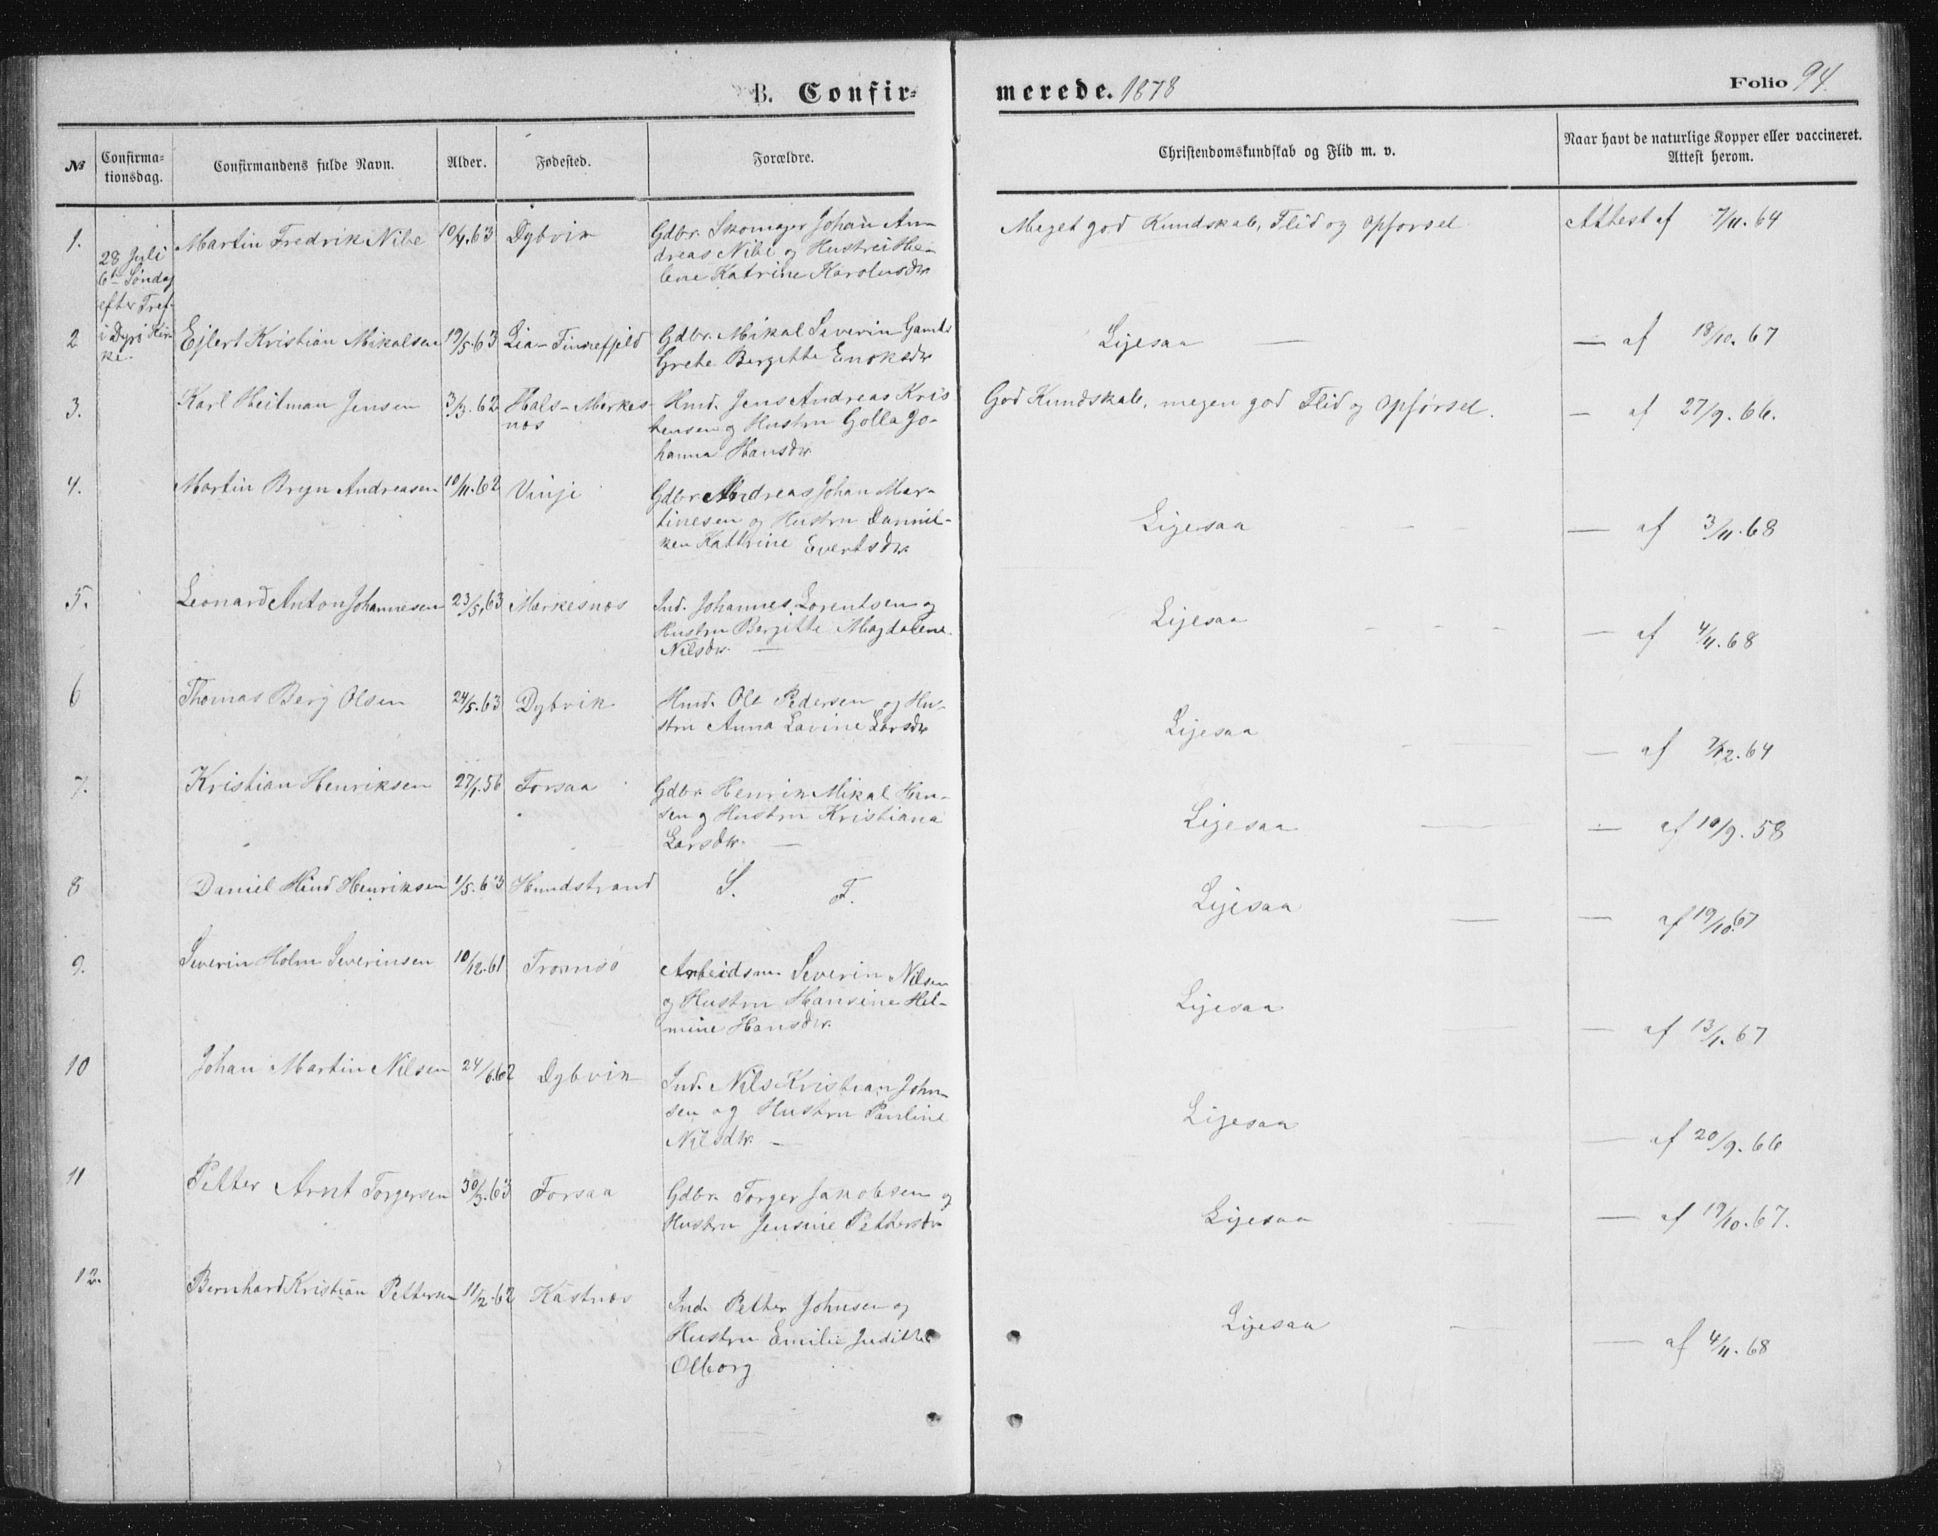 B. Confir=
merede. 1878
Folio 94.
№
Confirma=
tionsdag.
Confirmandens fulde Navn.
Alder.
Fødested.
Forældre.
Christendomskundskab og Flid m. v.
Naar havt de naturlige Kopper eller vaccineret.
Attest herom.
28 Juli
6te Søndag
efter Tref.
i Dyrø Kir-
ke.
1. Martin Fredrik Nibe 10/4.63 Dybvik
Gdbr. Skomager Johan An-
dreas Nibe og Hustru He-
lene Katrine Karolusdtr
Meget god Kundskab, Flid og Opførsel Attest af 7/11.64
2 Ejlert Kristian Mikalsen 19/5.63 Lia-Finnefjeld
Gdbr. Mikal Severin Gamts
Grethe Bergitte Enoksdtr
Ligesaa — — af 18/10.67
3. Karl Heitman Jensen 3/3.62 Hals-Merkes-
nœs
Hmd. Jens Andreas Kris
tensen og Hustru Golla Jo-
hanna Hansdtr
God Kundskab, megen god Flid og Opførsel. — af 27/9.66.
4. Martin Bryn Andreasen 10/11.62 Vinje
Gdbr. Andreas Johan Mar-
tinesen og Hustru Dannil-
ken Kathrine Evertsdtr
Ligesaa — — — — af 3/11.68
5. Leonard Anton Johannesen 23/5.63 Mærkesnœs
Ind. Johannes Lorentsen og
Hustru Bergitte Magdalena
Nilsdtr. —
Ligesaa — — — — af 4/11.68
6 Thomas Berg Olsen 24/5.63 Dybvik
Hmd. Ole Pedersen og Hu-
stru Anna Lovine Larsdtr
Ligesaa — — — af 7/12.64
7. Kristian Henriksen 27/1.56 Forsaa
Gdbr. Henrik Mikal Han-
sen og Hustru Kristiana
Larsdtr. —
Ligesaa — — af 10/9.58
8 Daniel Hind Henriksen 1/5.63 Hundstrand
S. F.
Ligesaa — — af 19/10.67
9. Severin Holm Severinsen 10/12.61 Tromsø
Arbeidsm. Severin Nilsen
og Hustru Hansine Hel-
mine Hansdtr.
Ligesaa — — af 13/1.67
10 Johan Martin Nilsen 24/6.62 Dybvik
Ind. Nils Kristian John-
sen og Hustru Pauline
Nilsdtr. —
Ligesaa — — af 20/9.66
11 Petter Arnt Torgersen 30/3.63 Forsaa
Gdbr. Torger Jakobsen og
Hustru Jensine Pettersdtr
Ligesaa — — af 19/10.67.
12. Bernhard Kristian Pettersen 11/12.62 Kastnœs
Ind. Petter Johnsen og
Hustru Emilie Judithe
Olborg
Ligesaa — — af 4/11.68